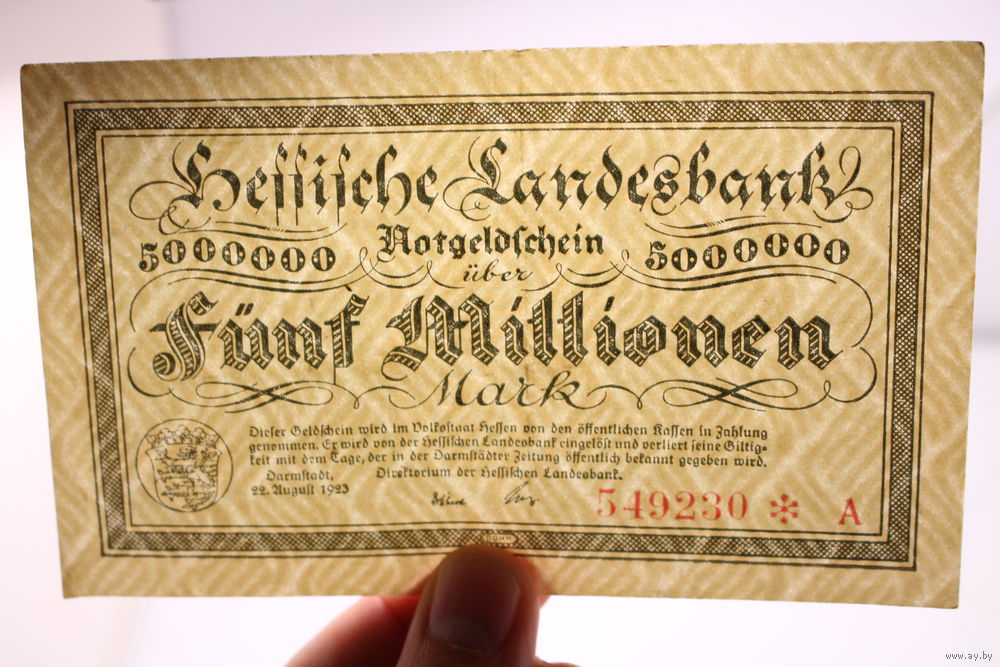 Hessische Landesbank
5000000 Notgeldschein 5000000
über
Fünf Millionen
Mark
Dieser Geldschein wird im Volksstaat Hessen von den öffentlichen Kassen in Zahlung
genommen. Er wird von der Hessischen Landesbank eingelöst und verliert seine Giltig-
keit mit dem Tage, der in der Darmstädter Zeitung öffentlich bekannt gegeben wird.
Darmstadt, Direktorium der Hessischen Landesbank.
22. August 1923
549230 * A
www.ay.by